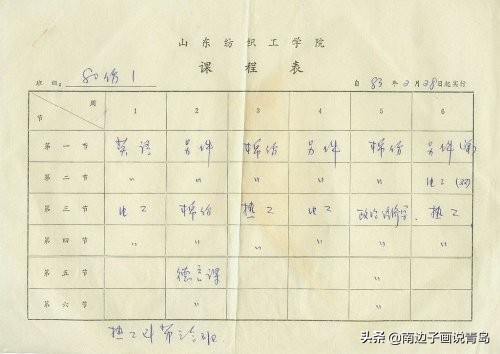 山东纺织工学院
课程表
班级: 80纺1 自83年2月28日起实行
周 1 2 3 4 5 6
节
第一节 英语 另件 棉纺 另件 棉纺 另件(单)
第二节 〃 〃 〃 〃 〃 电工(双)
第三节 电工 棉纺 热工 电工 政治经济学 热工
第四节 〃 〃 〃 〃 〃
第五节 德育课 〃
第六节 〃 〃
头条 @南边子画说青岛